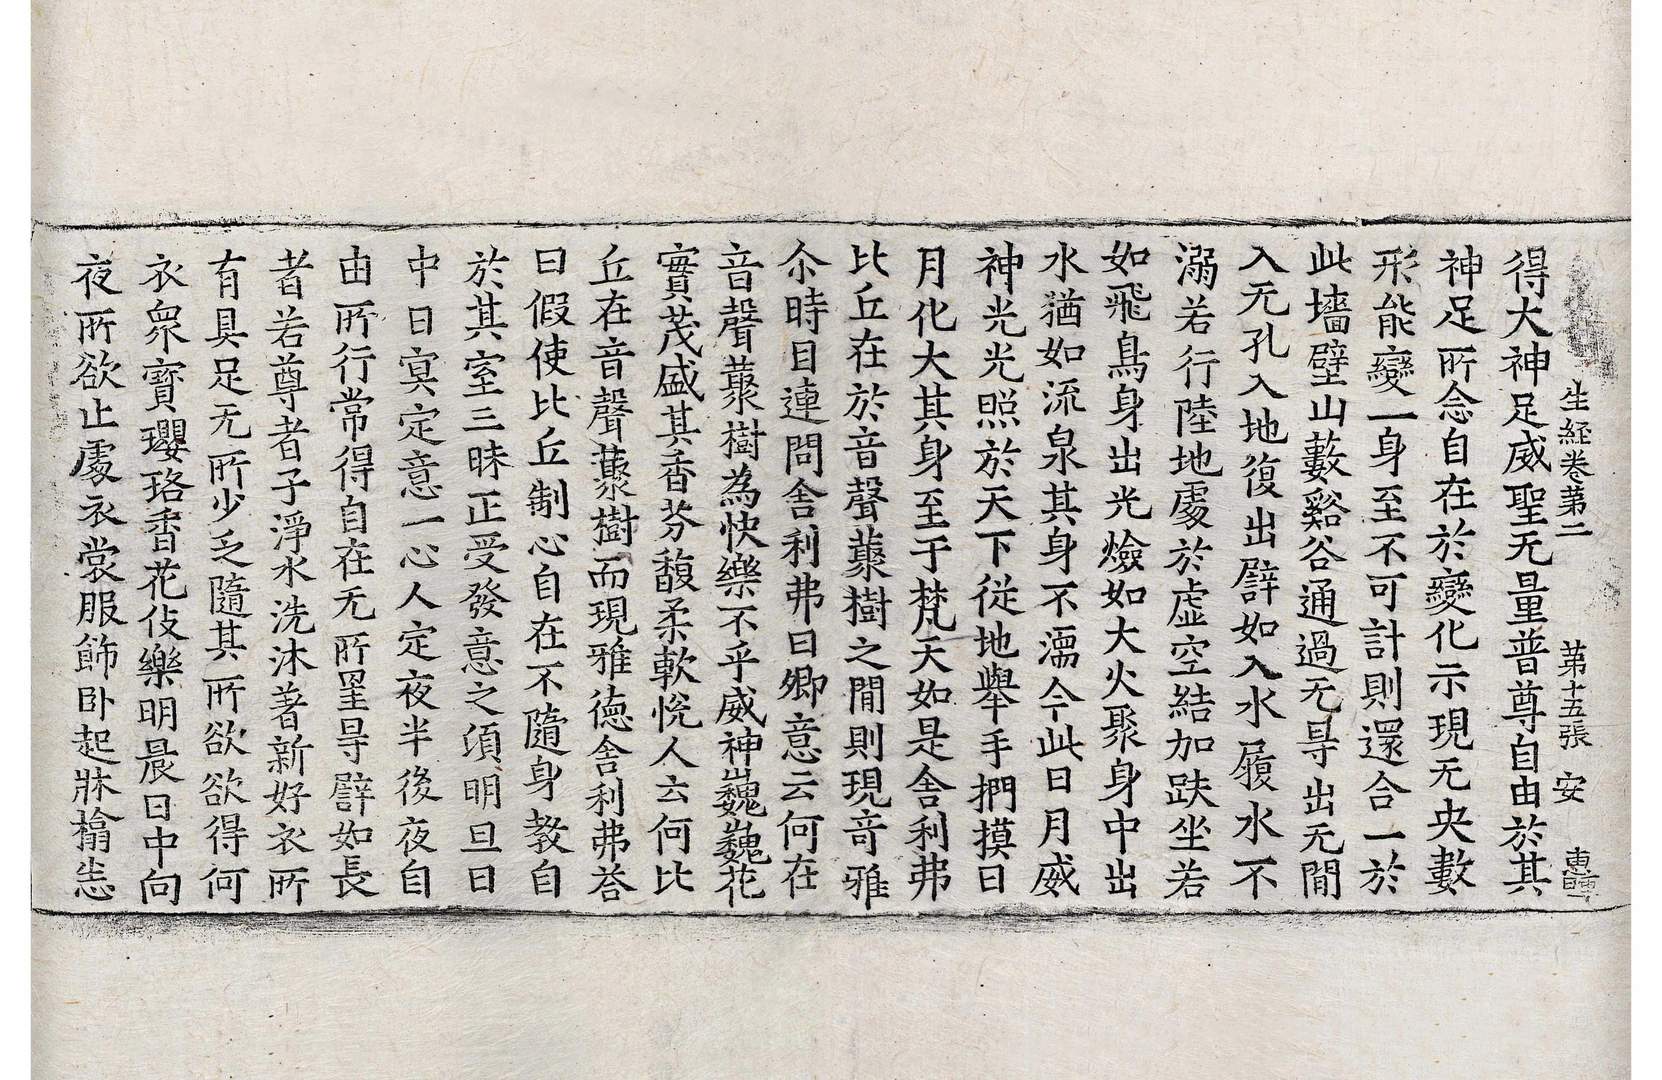 生経卷第二　第十五張　安
得大神足威聖无量普尊自由於其
神足所念自在於變化示現无央數
形能變一身至不可計則還合一於
此墻壁山藪谿谷通過无㝵出无間
入无孔入地復出譬如入水履水不
溺若行陸地處於虛空結加趺坐若
如飛鳥身出光燄如大火聚身中出
水猶如流泉其身不濡今此日月威
神光光照於天下從地舉手捫摸日
月化大其身至于梵天如是舍利弗
比丘在於音聲藂樹之間則現奇雅
尒時目連問舍利弗曰卿意云何在
音聲藂樹為快樂不乎威神巍巍花
實茂盛其香芬馥柔軟悅人云何比
丘在音聲藂樹而現雅德舍利弗荅
曰假使比丘制心自在不隨身教自
於其室三昧正受發意之須明旦日
中日冥定意一心人定夜半後夜自
由所行常得自在无所罣㝵譬如長
者若尊者子淨水洗沐著新好衣所
有具足无所少乏隨其所欲欲得何
衣眾寶瓔珞香花伎樂明晨日中向
夜所欲止處衣裳服飾卧起牀榻恣